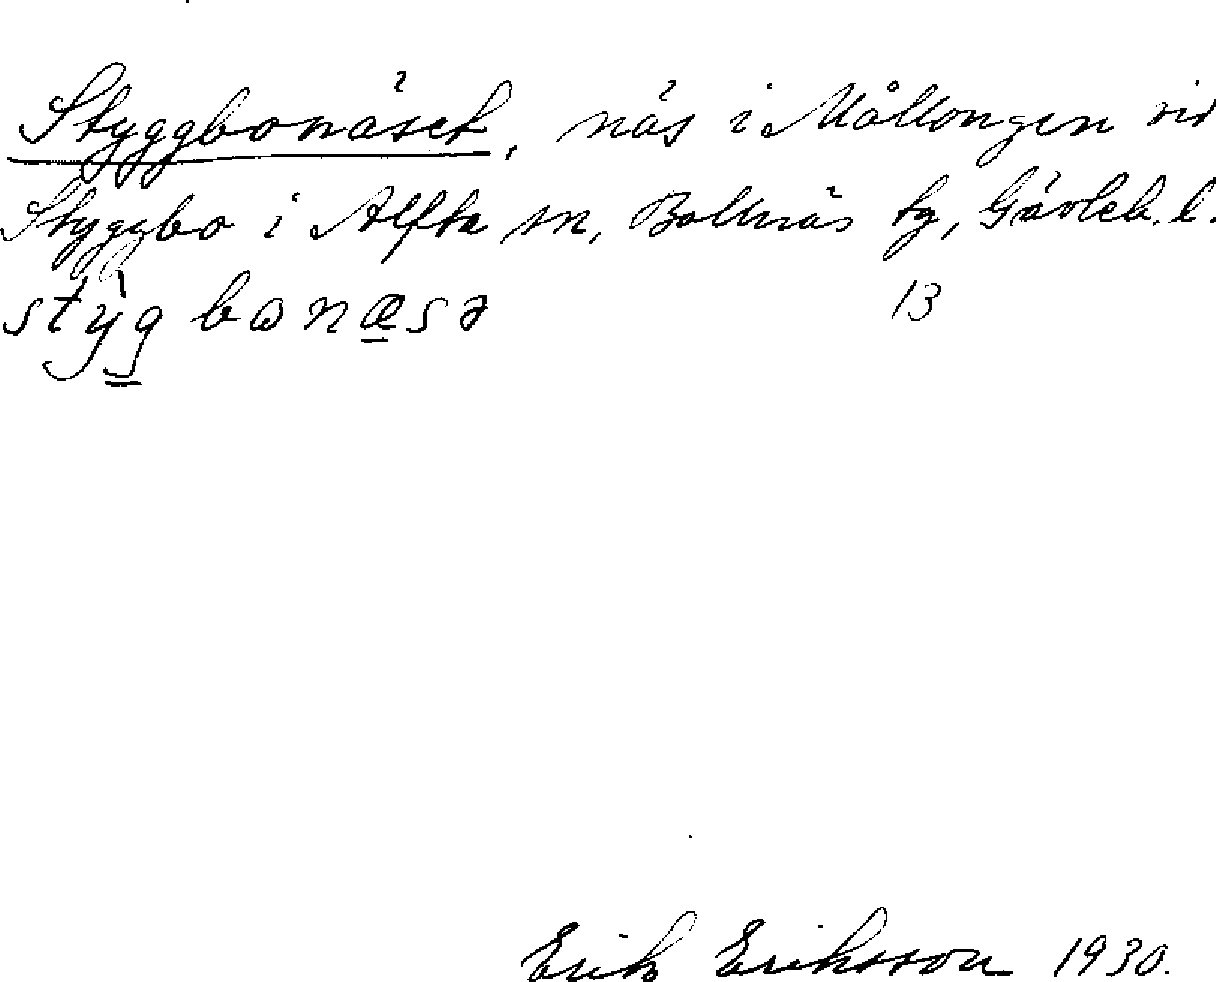 Styggbonäset, näs i Mållongen vid
Styggbo i Alfta sn, Bollnäs tg, Gävleb. l.
stỳg bωnæsə 13
Erik Eriksson 1930.